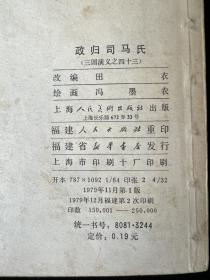 政归司马氏
(三国演义之四十三)
改编 田衣
绘画 冯墨农
上海人民美术出版社出版
上海长乐路672弄33号
福建人民出版社重印
福建省新华书店发行
上海市印刷十厂印刷
开本 787×1092 1/64 印张 2 4/32
1979年11月第1版
1979年12月福建第2次印刷
印数 150,001—250,000
统一书号: 8081·3244
定价: 0.19 元